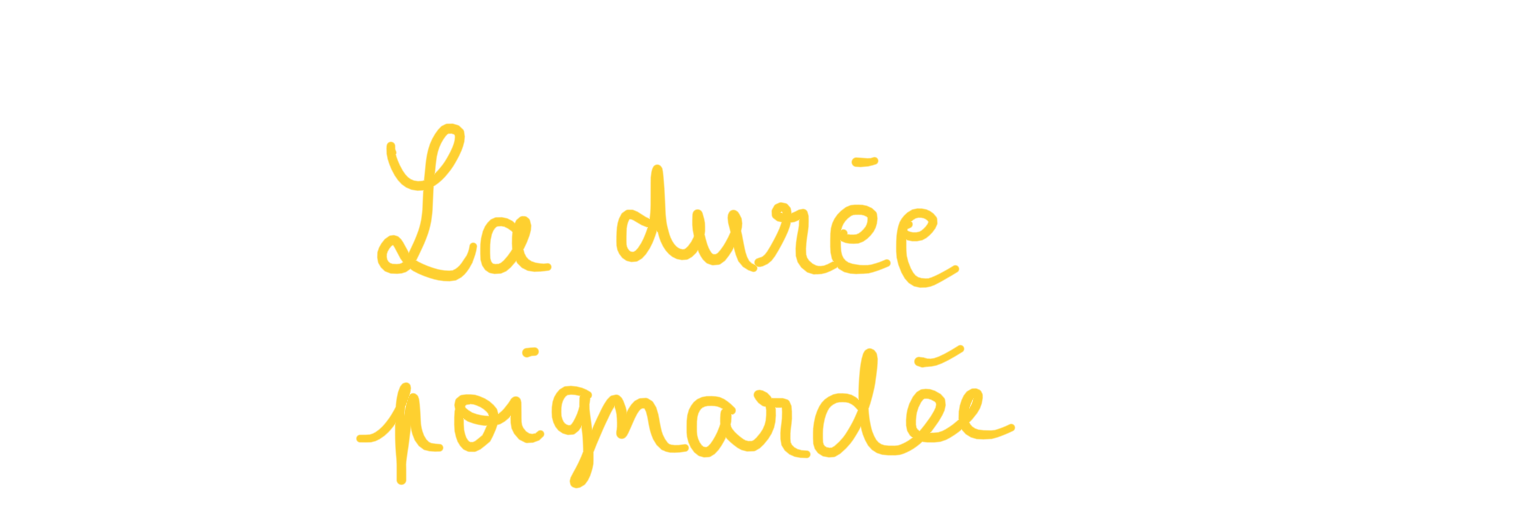 La durée
poignardée